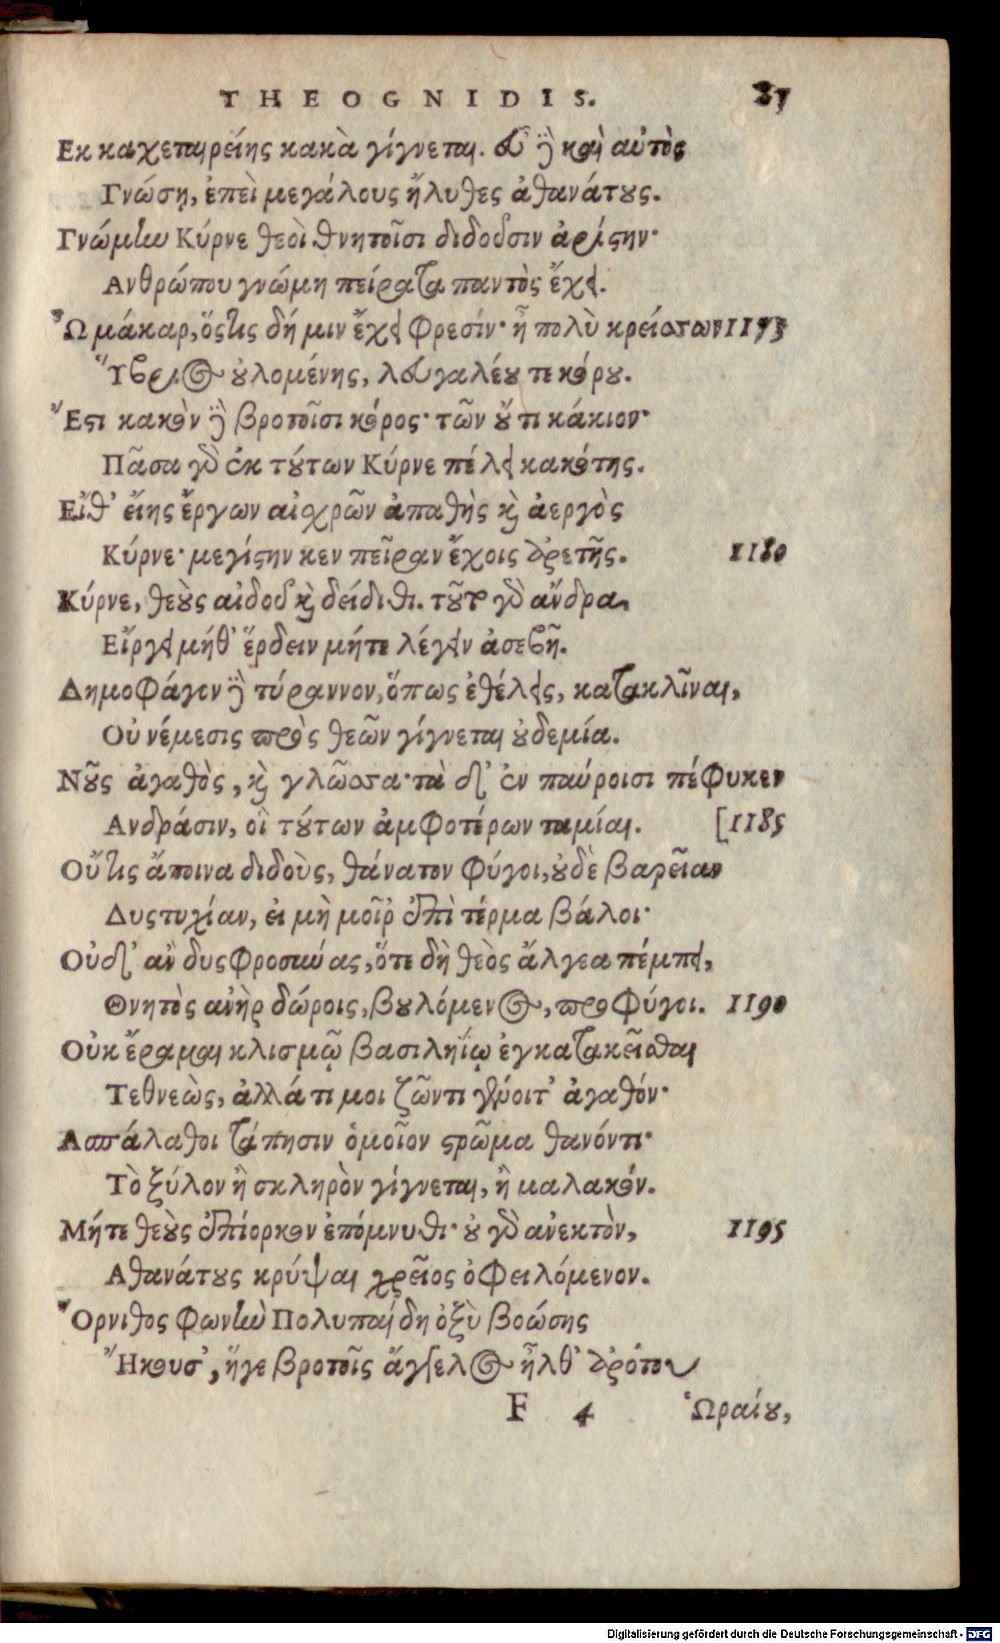 THEOGNIDIS. 87
Εκ καχεταιρείης κακὰ γίγνεται. εὖ ἢ καὶ αὐτὸς
Γνώσῃ, ἐπεὶ μεγάλους ἤλυθες ἀθανάτους.
Γνώμην Κύρνε θεοὶ θνητοῖσι διδοῦσιν ἀρίστην·
Ανθρώπου γνώμη πείρατα παντὸς ἔχει.
Ὦ μάκαρ, ὅστις δή μιν ἔχει φρεσίν· ἦ πολὺ κρείσσων 1175
Ὕβριος οὐλομένης, λευγαλέου τε κόρου.
Ἔστι κακὸν ἢ βροτοῖσι κόρος· τῶν οὔ τι κάκιον·
Πᾶσα γὰρ ἐκ τούτων Κύρνε πέλει κακότης.
Εἴθ' εἴης ἔργων αἰσχρῶν ἀπαθὴς καὶ ἀεργὸς
Κύρνε· μεγίστην κεν πεῖραν ἔχοις ἀρετῆς. 1180
Κύρνε, θεοὺς αἰδοῦ καὶ δείδιθι. τοῦτο γὰρ ἄνδρα
Εἴργει μήθ' ἕρδειν μήτε λέγειν ἀσεβῆ.
Δημοφάγον ἢ τύραννον, ὅπως ἐθέλεις, κατακλῖναι,
Οὐ νέμεσις πρὸς θεῶν γίγνεται οὐδεμία.
Νοῦς ἀγαθὸς, καὶ γλῶσσα· τὰ δ' ἐν παύροισι πέφυκεν
Ανδράσιν, οἳ τούτων ἀμφοτέρων ταμίαι. [1185
Οὔτις ἄποινα διδοὺς, θάνατον φύγοι, οὐδὲ βαρεῖαν
Δυστυχίαν, εἰ μὴ μοῖρ' ἐπὶ τέρμα βάλοι·
Οὐδ' ἂν δυσφροσύνας, ὅτε δὴ θεὸς ἄλγεα πέμπει,
Θνητὸς ἀνὴρ δώροις, βουλόμενος, προφύγοι. 1190
Οὐκ ἔραμαι κλισμῷ βασιληΐῳ ἐγκατακεῖσθαι
Τεθνεὼς, ἀλλά τι μοι ζῶντι γένοιτ' ἀγαθόν·
Ασπάλαθοι τάπησιν ὁμοῖον στρῶμα θανόντι·
Τὸ ξύλον ἢ σκληρὸν γίγνεται, ἢ μαλακόν.
Μήτε θεοὺς ἐπίορκον ἐπόμνυθι· οὐ γὰρ ἀνεκτὸν, 1195
Αθανάτους κρύψαι χρεῖος ὀφειλόμενον.
Ὄρνιθος φωνὴν Πολυπαίδη ὀξὺ βοώσης
Ἤκουσ', ἥγε βροτοῖς ἄγγελος ἦλθ' ἀρότου
F 4 Ὡραίου,
Digitalisierung gefördert durch die Deutsche Forschungsgemeinschaft - DFG